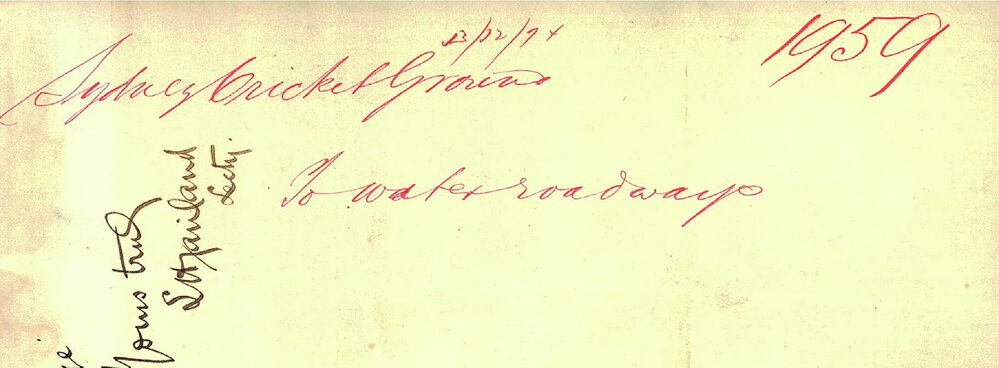 13/12/94
1959
Sydney Cricket Ground
To water roadways
Yours truly
Secty.